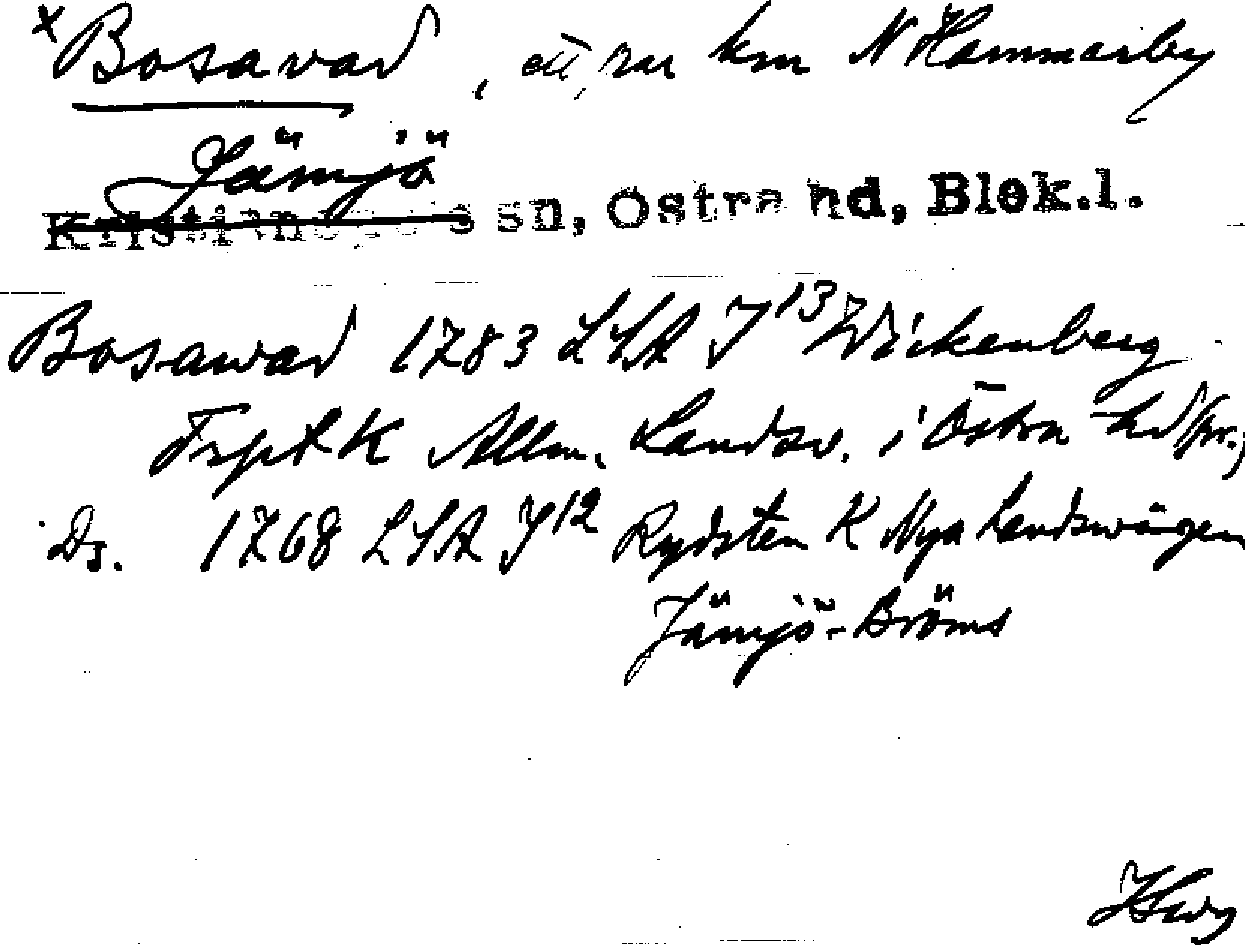 x Bosavad, ett par km N Hammarby
Jämjö
Kristianopels sn, Östra hd, Blek.l.
Bosawad 1783 LSA J13 Wickenberg
K Allm. Landsv. i Östra hd
Ds. 1768 LSA J12 Rydsten K Nya Landswägen
Jämjö-Bröms